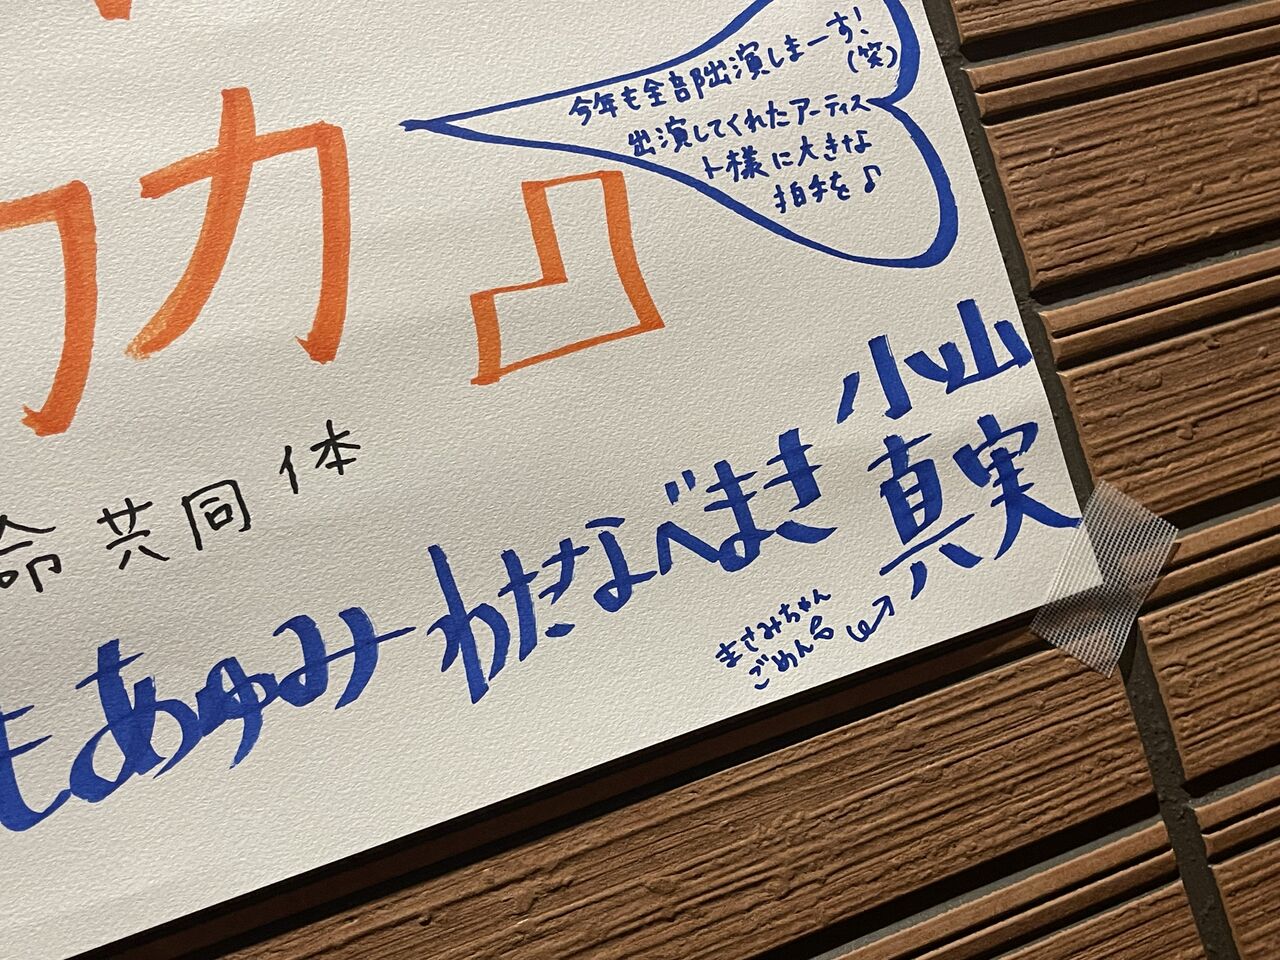 今年も全部出演しまーす!
(笑)
出演してくれたアーティス
ト様に大きな
拍手を♪
カカ』
命共同体
小山
真実
もあゆみ わたなべまき
まさみちゃん
ごめんね